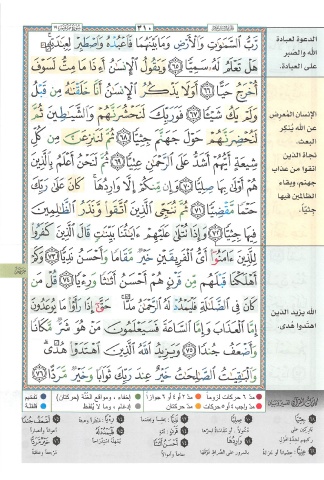 ٣١٠
رَّبُّ السَّمَٰوَٰتِ وَالْأَرْضِ وَمَا بَيْنَهُمَا فَاعْبُدْهُ وَاصْطَبِرْ لِعِبَٰدَتِهِۦ ۚ
هَلْ تَعْلَمُ لَهُۥ سَمِيًّا ٦٥ وَيَقُولُ الْإِنسَٰنُ أَءِذَا مَا مِتُّ لَسَوْفَ
أُخْرَجُ حَيًّا ٦٦ أَوَلَا يَذْكُرُ الْإِنسَٰنُ أَنَّا خَلَقْنَٰهُ مِن قَبْلُ
وَلَمْ يَكُ شَيْـًٔا ٦٧ فَوَرَبِّكَ لَنَحْشُرَنَّهُمْ وَالشَّيَٰطِينَ ثُمَّ
لَنُحْضِرَنَّهُمْ حَوْلَ جَهَنَّمَ جِثِيًّا ٦٨ ثُمَّ لَنَنزِعَنَّ مِن كُلِّ
شِيعَةٍ أَيُّهُمْ أَشَدُّ عَلَى الرَّحْمَٰنِ عِتِيًّا ٦٩ ثُمَّ لَنَحْنُ أَعْلَمُ بِالَّذِينَ
هُمْ أَوْلَىٰ بِهَا صِلِيًّا ٧٠ وَإِن مِّنكُمْ إِلَّا وَارِدُهَا ۚ كَانَ عَلَىٰ رَبِّكَ
حَتْمًا مَّقْضِيًّا ٧١ ثُمَّ نُنَجِّي الَّذِينَ اتَّقَوا وَّنَذَرُ الظَّٰلِمِينَ
فِيهَا جِثِيًّا ٧٢ وَإِذَا تُتْلَىٰ عَلَيْهِمْ ءَايَٰتُنَا بَيِّنَٰتٍ قَالَ الَّذِينَ كَفَرُوا
لِلَّذِينَ ءَامَنُوا أَيُّ الْفَرِيقَيْنِ خَيْرٌ مَّقَامًا وَأَحْسَنُ نَدِيًّا ٧٣ وَكَمْ
أَهْلَكْنَا قَبْلَهُم مِّن قَرْنٍ هُمْ أَحْسَنُ أَثَٰثًا وَرِءْيًا ٧٤ قُلْ مَن
كَانَ فِي الضَّلَٰلَةِ فَلْيَمْدُدْ لَهُ الرَّحْمَٰنُ مَدًّا ۚ حَتَّىٰ إِذَا رَأَوْا مَا يُوعَدُونَ
إِمَّا الْعَذَابَ وَإِمَّا السَّاعَةَ فَسَيَعْلَمُونَ مَنْ هُوَ شَرٌّ مَّكَانًا
وَأَضْعَفُ جُندًا ٧٥ وَيَزِيدُ اللَّهُ الَّذِينَ اهْتَدَوْا هُدًى ۗ
وَالْبَٰقِيَٰتُ الصَّٰلِحَٰتُ خَيْرٌ عِندَ رَبِّكَ ثَوَابًا وَخَيْرٌ مَّرَدًّا ٧٦
الدعوة لعبادة
الله والصبر
على العبادة.
الإنسان المُعرض
عن الله يُنكر
البعث.
نجاة الذين
اتقوا من عذاب
جهنم، وبقاء
الظالمين فيها
جثيًّا.
الله يزيد الذين
اهتدوا هدى.
مدّ ٦ حركات لزوماً
مدّ ٢ أو ٤ أو ٦ جوازاً
إخفاء، ومواقع الغُنَّة (حركتان)
تفخيم
مدّ واجب ٤ أو ٥ حركات
مدّ حركتان
إدغام، وما لا يُلفظ
قلقلة